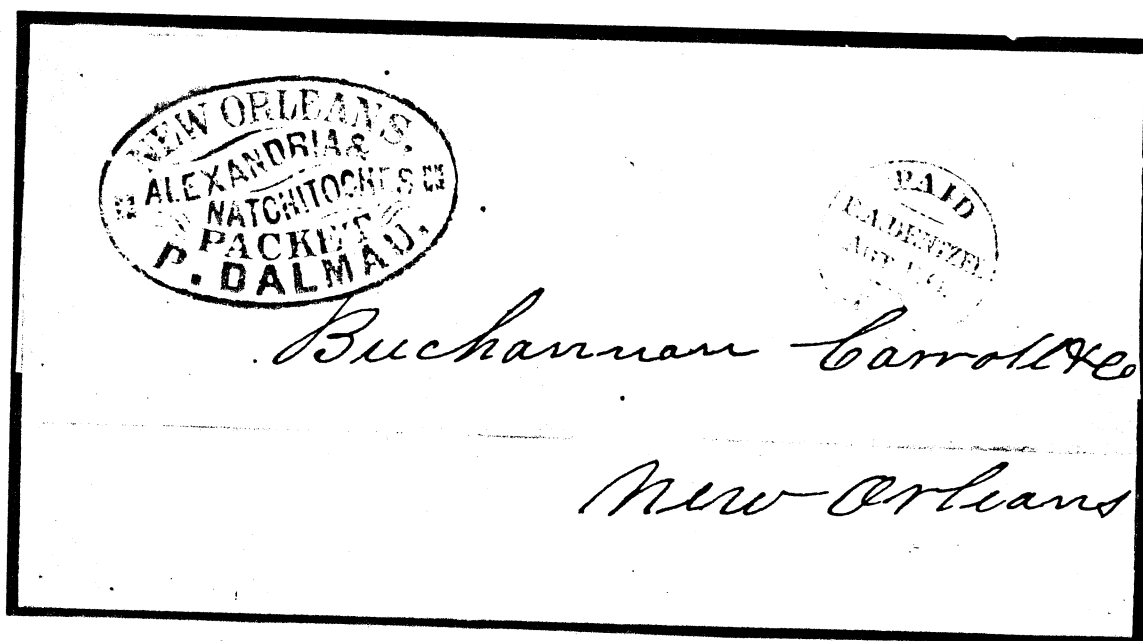 NEW ORLEANS.
ALEXANDRIA &
NATCHITOCHES
PACKET
P. DALMAU.
PAID
AGT
Buchannan Carroll & Co
New Orleans